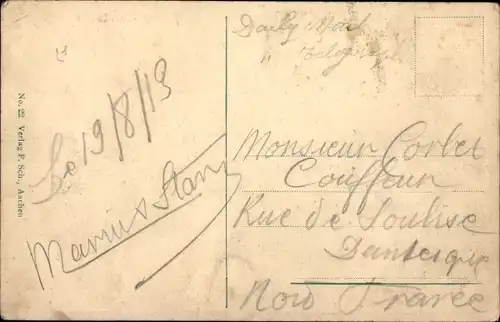 No. 22 Verlag F. Sch., Aachen
Le 19/8/13
Marius Stany
Daily Mail
" Telegraph
Monsieur Corbet
Coiffeur
Rue de Soulise
Dunkerque
Nord France